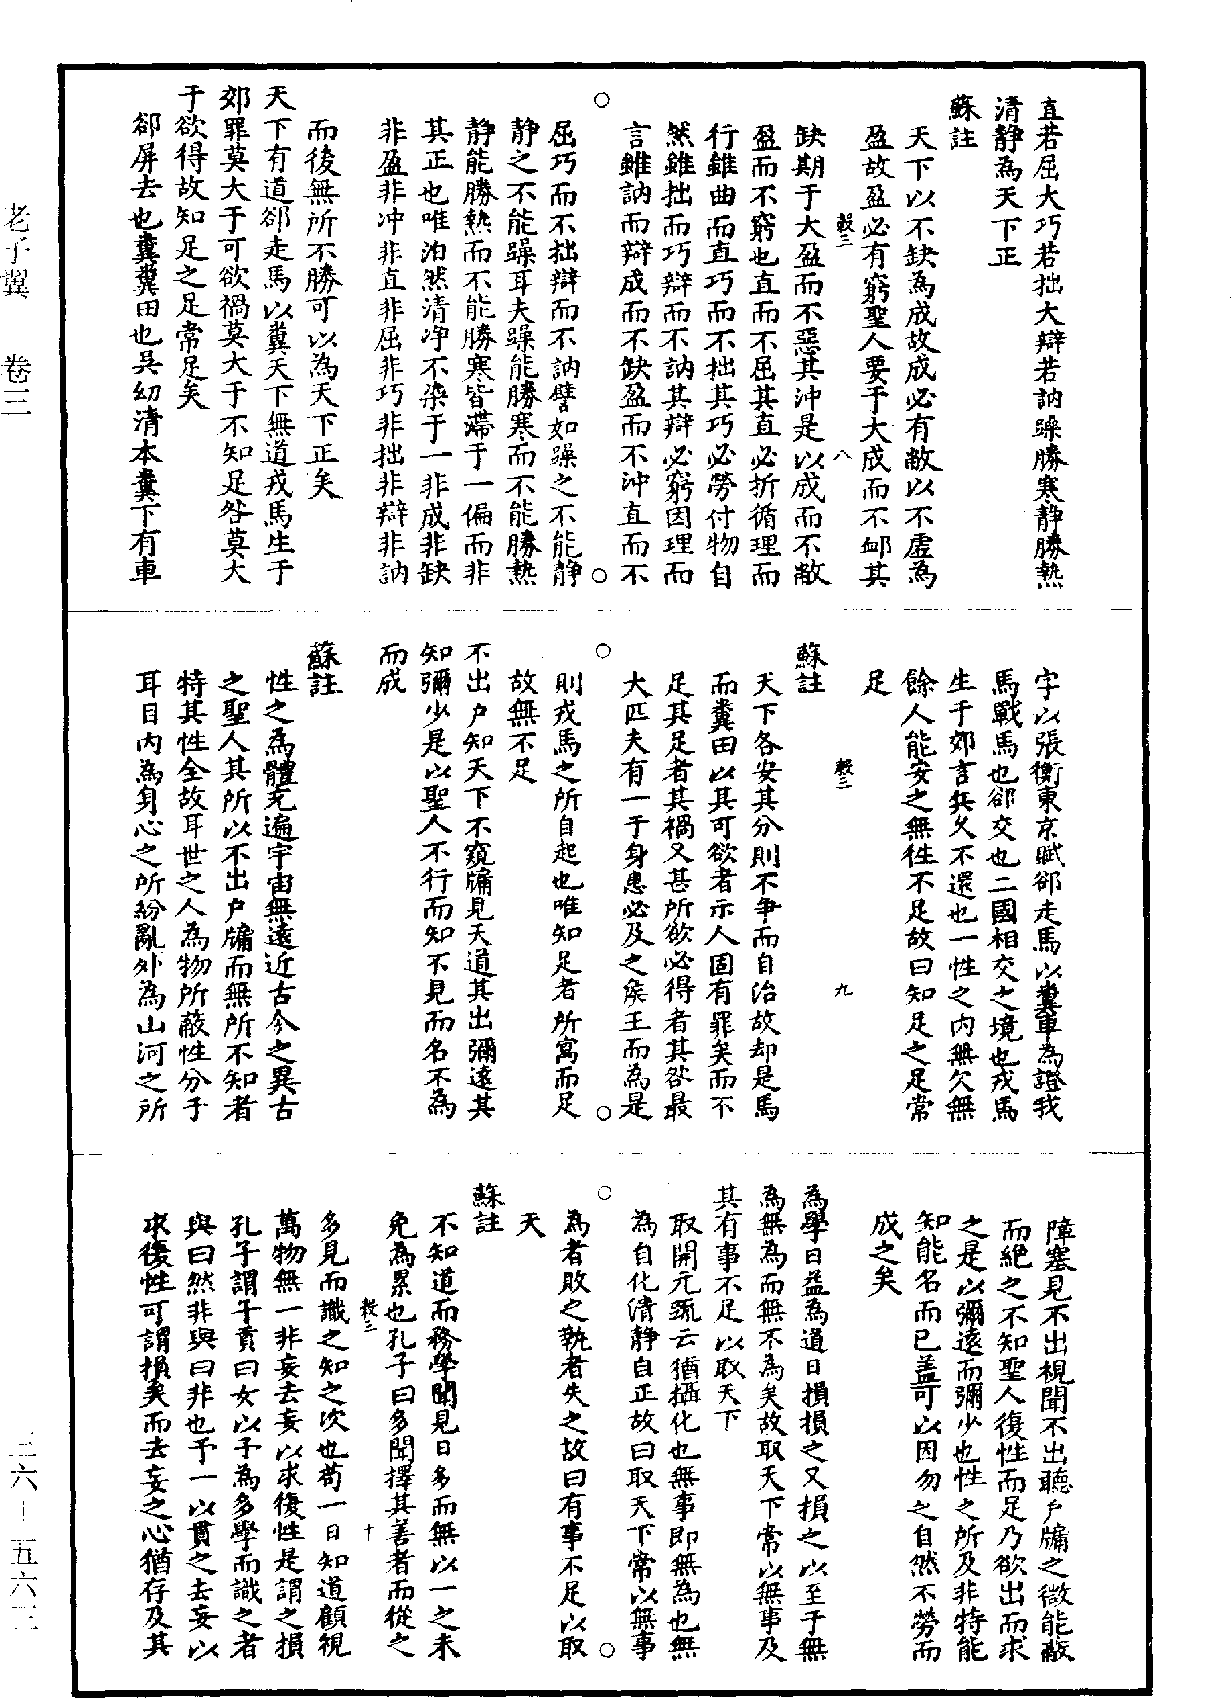 直若屈大巧若拙大辯若訥躁勝寒靜勝熱
清靜為天下正
蘇註
天下以不缺為成故成必有敝以不虛為
盈故盈必有窮聖人要于大成而不卹其
缺期于大盈而不惡其沖是以成而不敝
盈而不窮也直而不屈其直必折循理而
行雖曲而直巧而不拙其巧必勞付物自
然雖拙而巧辯而不訥其辯必窮因理而
言雖訥而辯成而不缺盈而不沖直而不
屈巧而不拙辯而不訥譬如躁之不能靜
靜之不能躁耳夫躁能勝寒而不能勝熱
靜能勝熱而不能勝寒皆滯于一偏而非
其正也唯泊然清净不染于一非成非缺
非盈非冲非直非屈非巧非拙非辯非訥
而後無所不勝可以為天下正矣
天下有道郤走馬以糞天下無道戎馬生于
郊罪莫大于可欲禍莫大于不知足咎莫大
于欲得故知足之足常足矣
郤屏去也糞糞田也吳幼清本糞下有車
字以張衡東京賦郤走馬以糞車為證我
馬戰馬也郤交也二國相交之境也戎馬
生于郊言兵久不還也一性之內無欠無
餘人能安之無徃不足故曰知足之足常
足
蘇註
天下各安其分則不争而自治故却是馬
而糞田以其可欲者示人固有罪矣而不
足其足者其禍又甚所欲必得者其咎最
大匹夫有一于身患必及之侯王而為是
則戎馬之所自起也唯知足者所寓而足
故無不足
不出户知天下不窺牖見天道其出彌遠其
知彌少是以聖人不行而知不見而名不為
而成
蘇註
性之為體充遍宇宙無遠近古今之異古
之聖人其所以不出户牖而無所不知者
特其性全故耳世之人為物所蔽性分于
耳目内為身心之所紛亂外為山河之所
障塞見不出視聞不出聽户牖之微能蔽
而絶之不知聖人復性而足乃欲出而求
之是以彌遠而彌少也性之所及非特能
知能名而已盖可以因勿之自然不勞而
成之矣
為學日益為道日損損之又損之以至于無
為無為而無不為矣故取天下常以無事及
其有事不足以取天下
取開元疏云猶攝化也無事即無為也無
為自化清靜自正故曰取天下常以無事
為者敗之執者失之故曰有事不足以取
天
蘇註
不知道而務學聞見日多而無以一之未
免為累也孔子曰多聞擇其善者而從之
多見而識之知之次也苟一日知道顧視
萬物無一非妄去妄以求復性是謂之損
孔子謂子貢曰女以予為多學而識之者
與曰然非與曰非也予一以貫之去妄以
求復性可謂損矣而去妄之心猶存及其
老子翼　卷三
三六－五六二
毂三　八
毂三　九
毂三　十